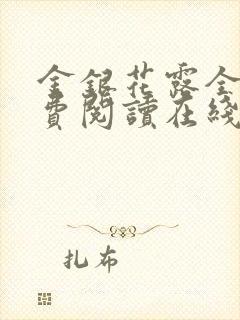 金銀花露全
費閱讀在綫
扎布